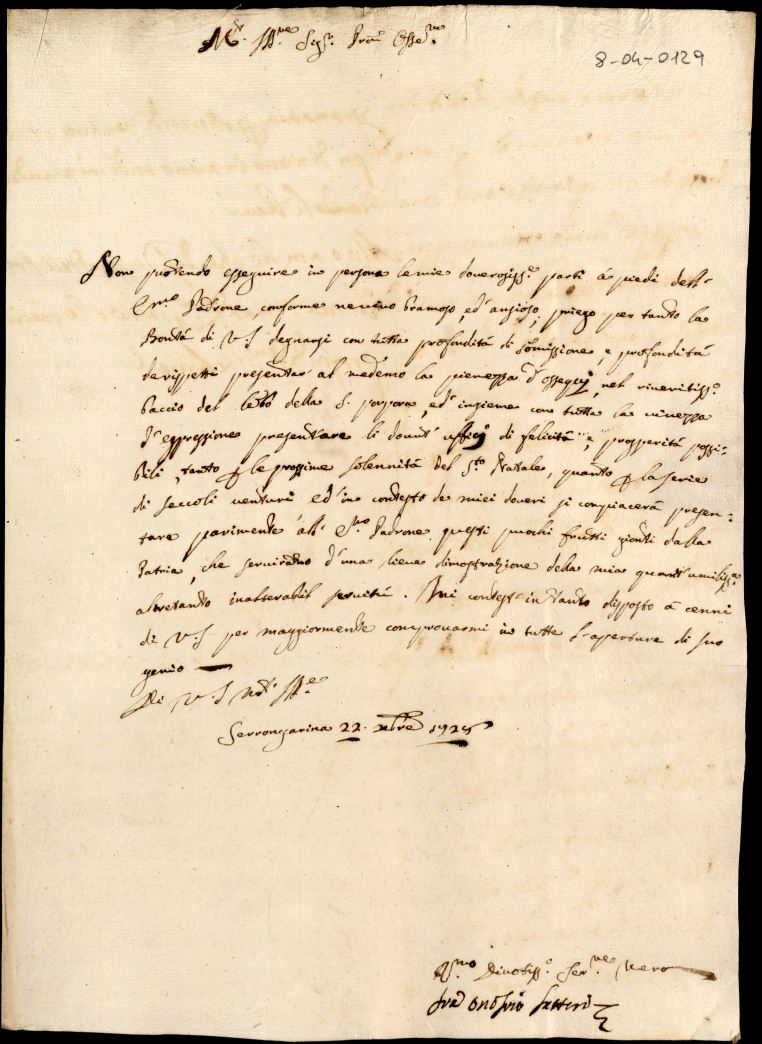 Mto. Ille. Sigr. Proñ Osse.mo
8-04-0129
Non puotendo esseguire in persona le mie doverosiss.e parti á piedi dell'
E.mo Padrone, conforme ne vivo bramoso, ed' ansioso, priego per tanto la
Bontá di V.S. degnarsi con tutta profonditá di sómissione, e profonditá
de rispetti presentar al medemo la pienezza d'ossequij, nel riveritiss.o
baccio del lébo della S. porpora, ed' insieme con tutta la vivezza
d'espressione presentare li dovuti ufficij di felicitá, e prosperitá possi-
bili, tanto p le prossime solennitá del S.to Natale, quanto p la serie
di seccoli venturi ed' in contesto de miei doveri si compiacerá presen-
tare parimente all' E.mo Padrone questi puochi frutti gionti dalla
Patria, che serviranno d'una lieve dimostrazione della mia quant' umiliss.a
altretanto inalterabil servitú. Mi contest' in tanto disposto á cenni
di V.S. per maggiormente comprovarmi in tutte l'aperture di suo
genio
Di V.S. Mto. Ill.e
Serrongarina 22. Xbre 1725
Divotiss.o Ser.re vero
Onofrio